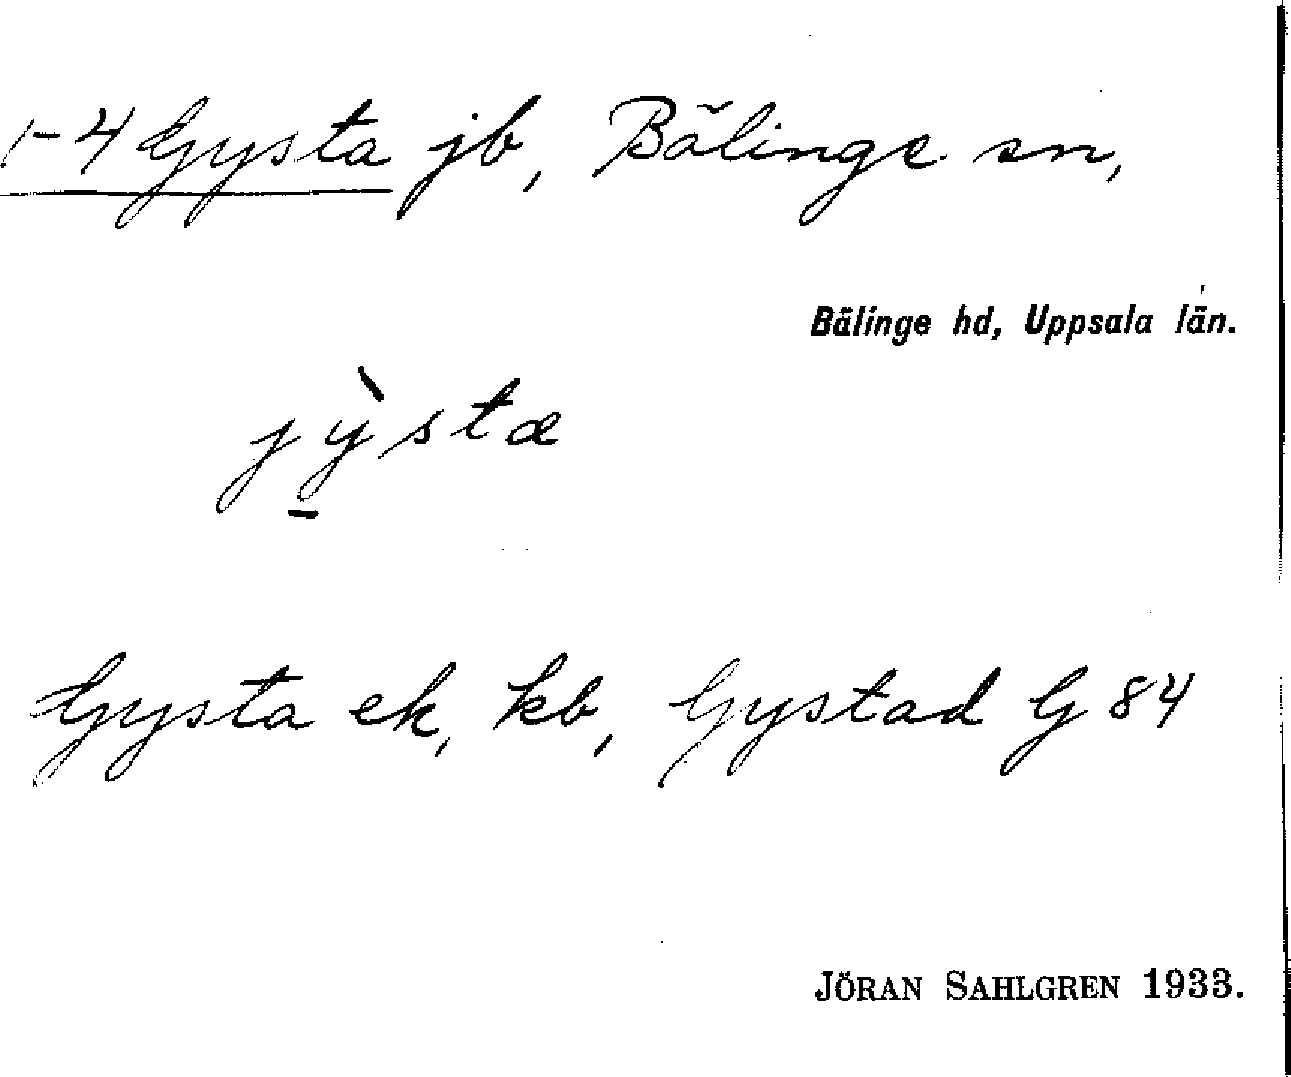 1-4 Gysta jb, Bälinge sn,
Bälinge hd, Uppsala län.
jỳ̱sta
Gysta ek, kb, Gystad G 84
JÖRAN SAHLGREN 1933.